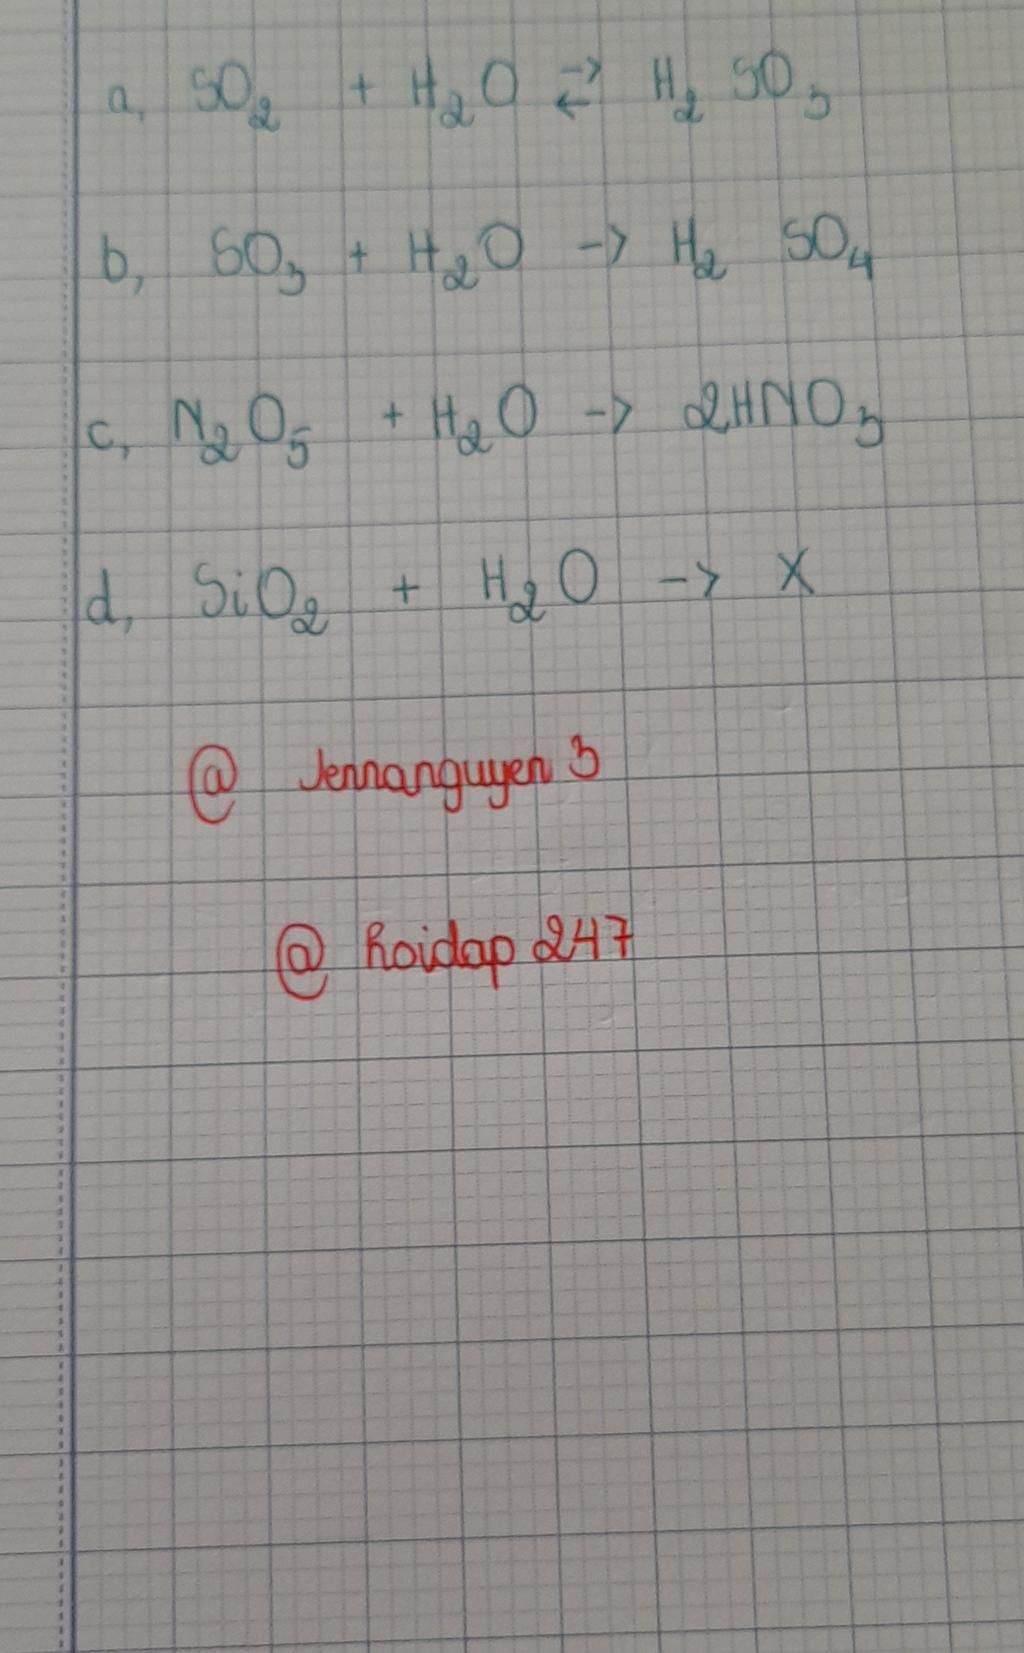 a, SO₂ + H₂O ⇄ H₂ SO₃
b, SO₃ + H₂O -> H₂ SO₄
c, N₂O₅ + H₂O -> 2HNO₃
d, SiO₂ + H₂O -> X
@ Jennanguyen 3
@ Hoidap 247